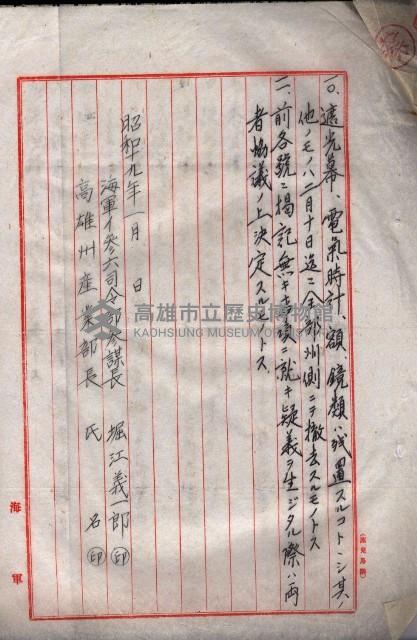 一〇、遮光幕、電氣時計、額、鏡類ハ残置スルコトシ其ノ
他ノモノハ二月十日迄ニ全部州側ニテ撤去スルモノトス
二、前各號ニ揭記無キ事項ニ就キ疑義ヲ生ジタル際ハ両
者協議ノ上決定スルモノトス
昭和九年一月 日
海軍イ参六司令部参謀長 堀江義一郎 印
高雄州産業部長 氏名 印
海軍
高雄市立歷史博物館
KAOHSIUNG MUSEUM OF HISTORY